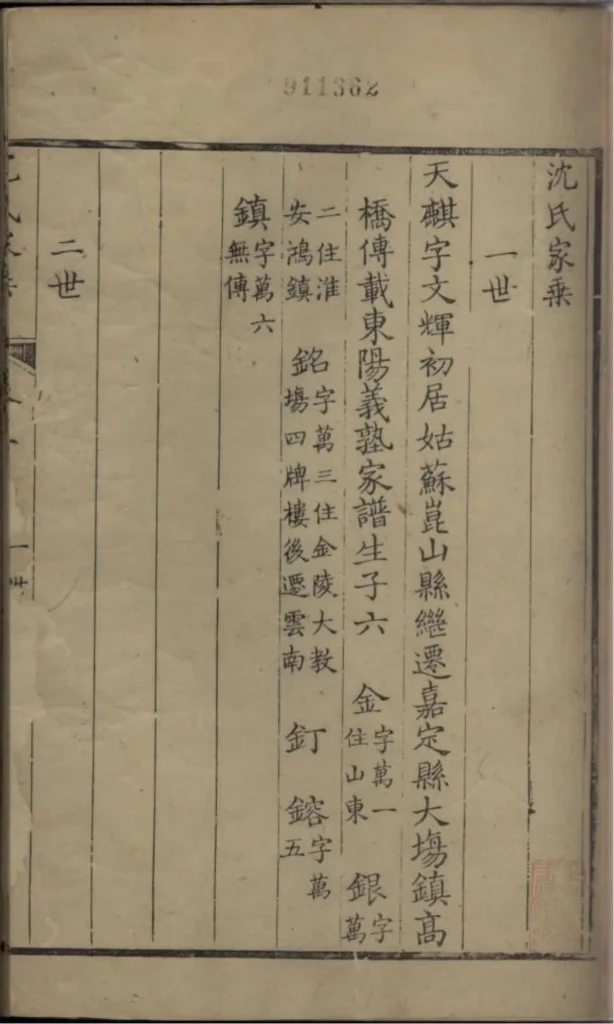 911362
沈氏家乗
一世
天麒字文輝初居姑蘇崑山縣繼遷嘉定縣大塲鎮高
橋傳載東陽義塾家譜生子六 金字萬一住山東 銀字萬
二住淮安鴻鎮 銘字萬三住金陵大教塲四牌樓後遷雲南 釘 鎔字萬五
鎮字萬六無傳
二世